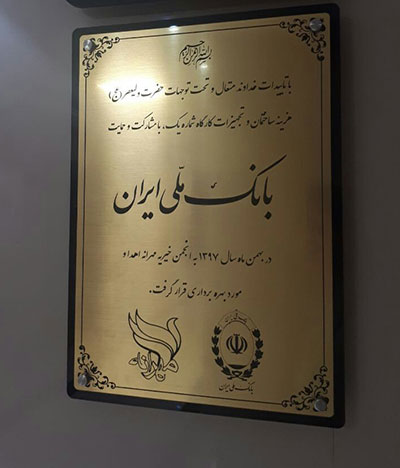 بسم الله الرحمن الرحیم
با تاییدات خداوند متعال و تحت توجهات حضرت ولیعصر (عج)
هزینه ساختمان و تجهیزات کارگاه شماره یک، با مشارکت و حمایت
بانک ملّی ایران
در بهمن ماه سال ۱۳۹۷ به انجمن خیریه مهرانه اهدا و
مورد بهره برداری قرار گرفت.
مهرانه
بانک ملی ایران